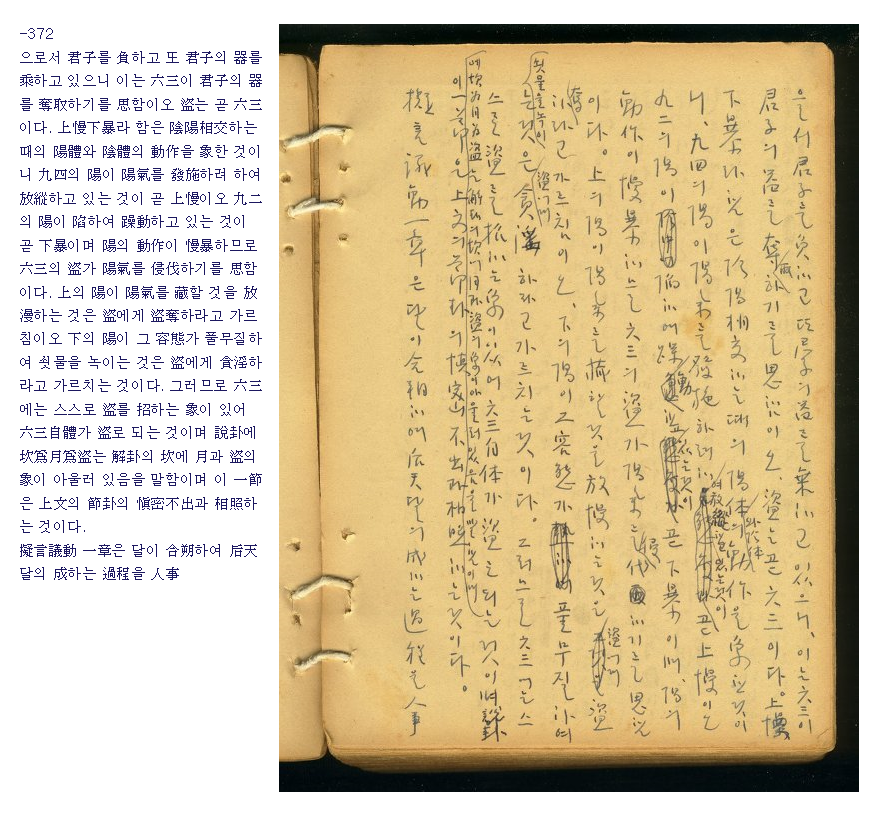 -372
으로서 君子를 負하고 또 君子의 器를
乘하고 있으니 이는 六三이 君子의 器
를 奪取하기를 思함이오 盜는 곧 六三
이다. 上慢下暴라 함은 陰陽相交하는
때의 陽體와 陰體의 動作을 象한 것이
니 九四의 陽이 陽氣를 發施하려 하여
放縱하고 있는 것이 곧 上慢이오 九二
의 陽이 陷하여 躁動하고 있는 것이
곧 下暴이며 陽의 動作이 慢暴하므로
六三의 盜가 陽氣를 侵伐하기를 思함
이다. 上의 陽이 陽氣를 藏할 것을 放
漫하는 것은 盜에게 盜奪하라고 가르
침이오 下의 陽이 그 容態가 풀무질하
여 쇳물을 녹이는 것은 盜에게 貪淫하
라고 가르치는 것이다. 그러므로 六三
에는 스스로 盜를 招하는 象이 있어
六三自體가 盜로 되는 것이며 說卦에
坎爲月爲盜는 解卦의 坎에 月과 盜의
象이 아울러 있음을 말함이며 이 一節
은 上文의 節卦의 愼密不出과 相照하
는 것이다.
擬言議動 一章은 달이 合朔하여 后天
달의 成하는 過程을 人事
으로서 君子를 負하고 또 君子의 器를 乘하고 있으니, 이는 六三이
君子의 器를 奪取하기를 思함이오, 盜는 곧 六三이다. 上慢
下暴라 함은 陰陽相交하는 때의 陽体와 陰体의 動作을 象한 것이
니, 九四의 陽이 陽氣를 發施하려 하여 放縱하고 있는 것이 곧 上慢이오
九二의 陽이 陷하여 躁動하고 있는 것이 곧 下暴이며, 陽의
動作이 慢暴하므로 六三의 盜가 陽氣를 侵伐하기를 思함
이다. 上의 陽이 陽氣를 藏할 것을 放慢하는 것은 盜에게 盜
奪하라고 가르침이오, 下의 陽이 그 容態가 풀무질하여
쇳물을 녹이는 것은 盜에게 貪淫하라고 가르치는 것이다. 그러므로 六三에는 스
스로 盜를 招하는 象이 있어 六三自体가 盜로 되는 것이며, 說卦
에 坎为月为盜는 解卦의 坎에 月과 盜의 象이 아울러 있음을 말함이며
이 一節은 上文의 節卦의 愼密不出과 相照하는 것이다.
擬言議動 一章은 달이 合朔하여 后天달의 成하는 過程을 人事